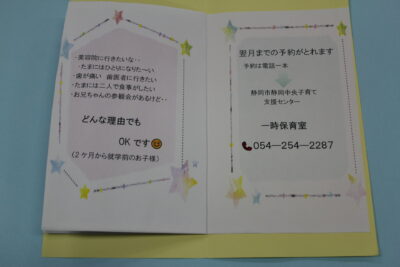 ・美容院に行きたいな・・
・たまにはひとりになりた～い
・歯が痛い 歯医者に行きたい
・たまには二人で食事がしたい
・お兄ちゃんの参観会があるけど・・
どんな理由でも
OKです
(2ケ月から就学前のお子様)
翌月までの予約がとれます
予約は電話一本
静岡市静岡中央子育て
支援センター
一時保育室
054―254―2287